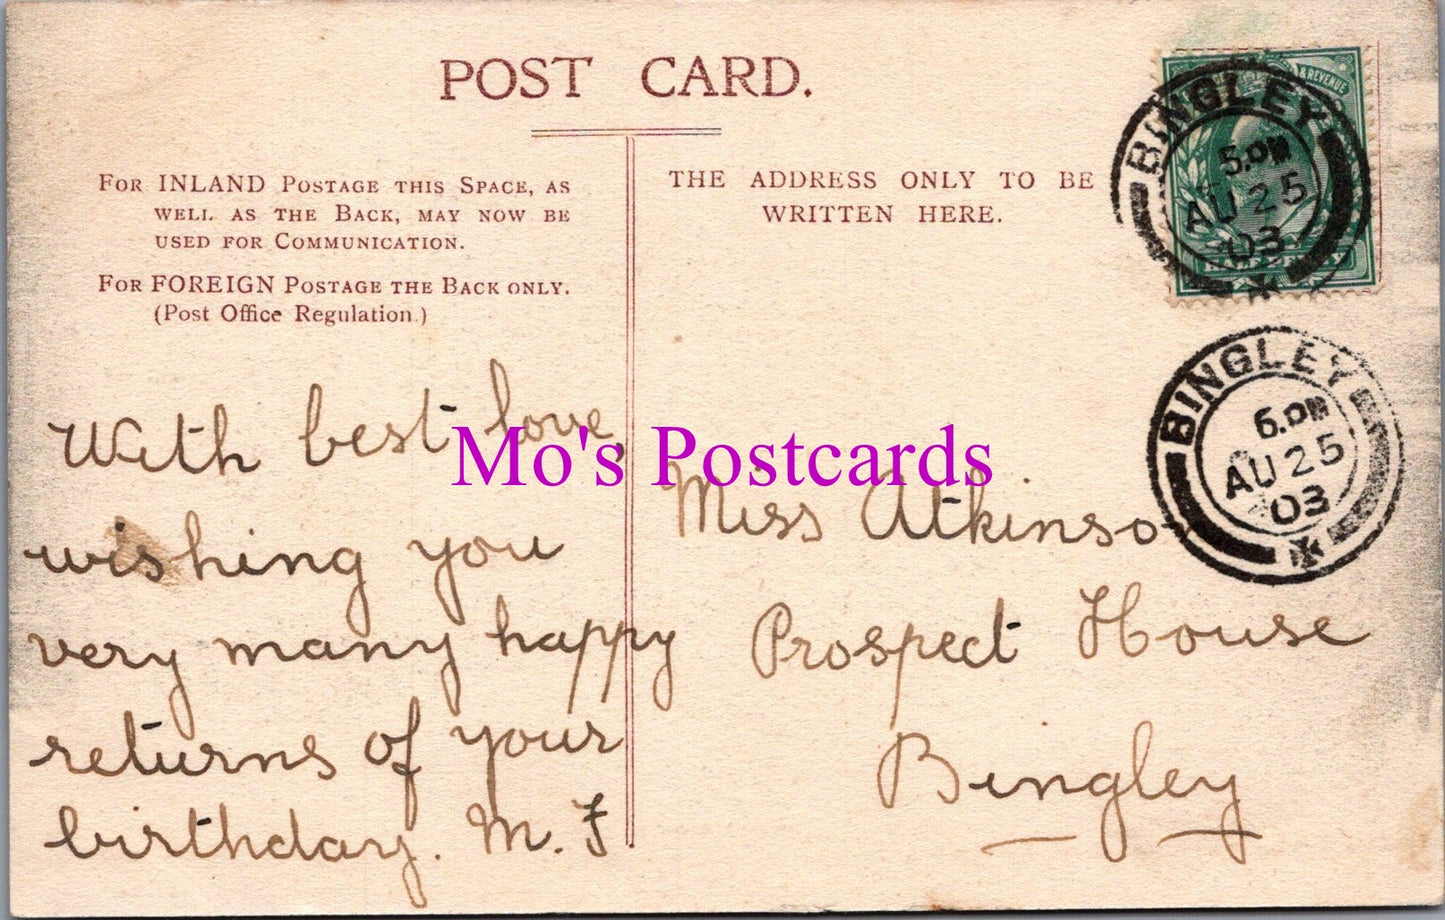 POST CARD.
FOR INLAND POSTAGE THIS SPACE, AS
WELL AS THE BACK, MAY NOW BE
USED FOR COMMUNICATION.
FOR FOREIGN POSTAGE THE BACK ONLY.
(Post Office Regulation.)
THE ADDRESS ONLY TO BE
WRITTEN HERE.
& REVENUE
BINGLEY
5.PM
AU 25
03
BINGLEY
6.PM
AU 25
03
With best love,
wishing you
very many happy
returns of your
birthday. M. F
Miss Atkinson
Prospect House
Bingley
Mo's Postcards